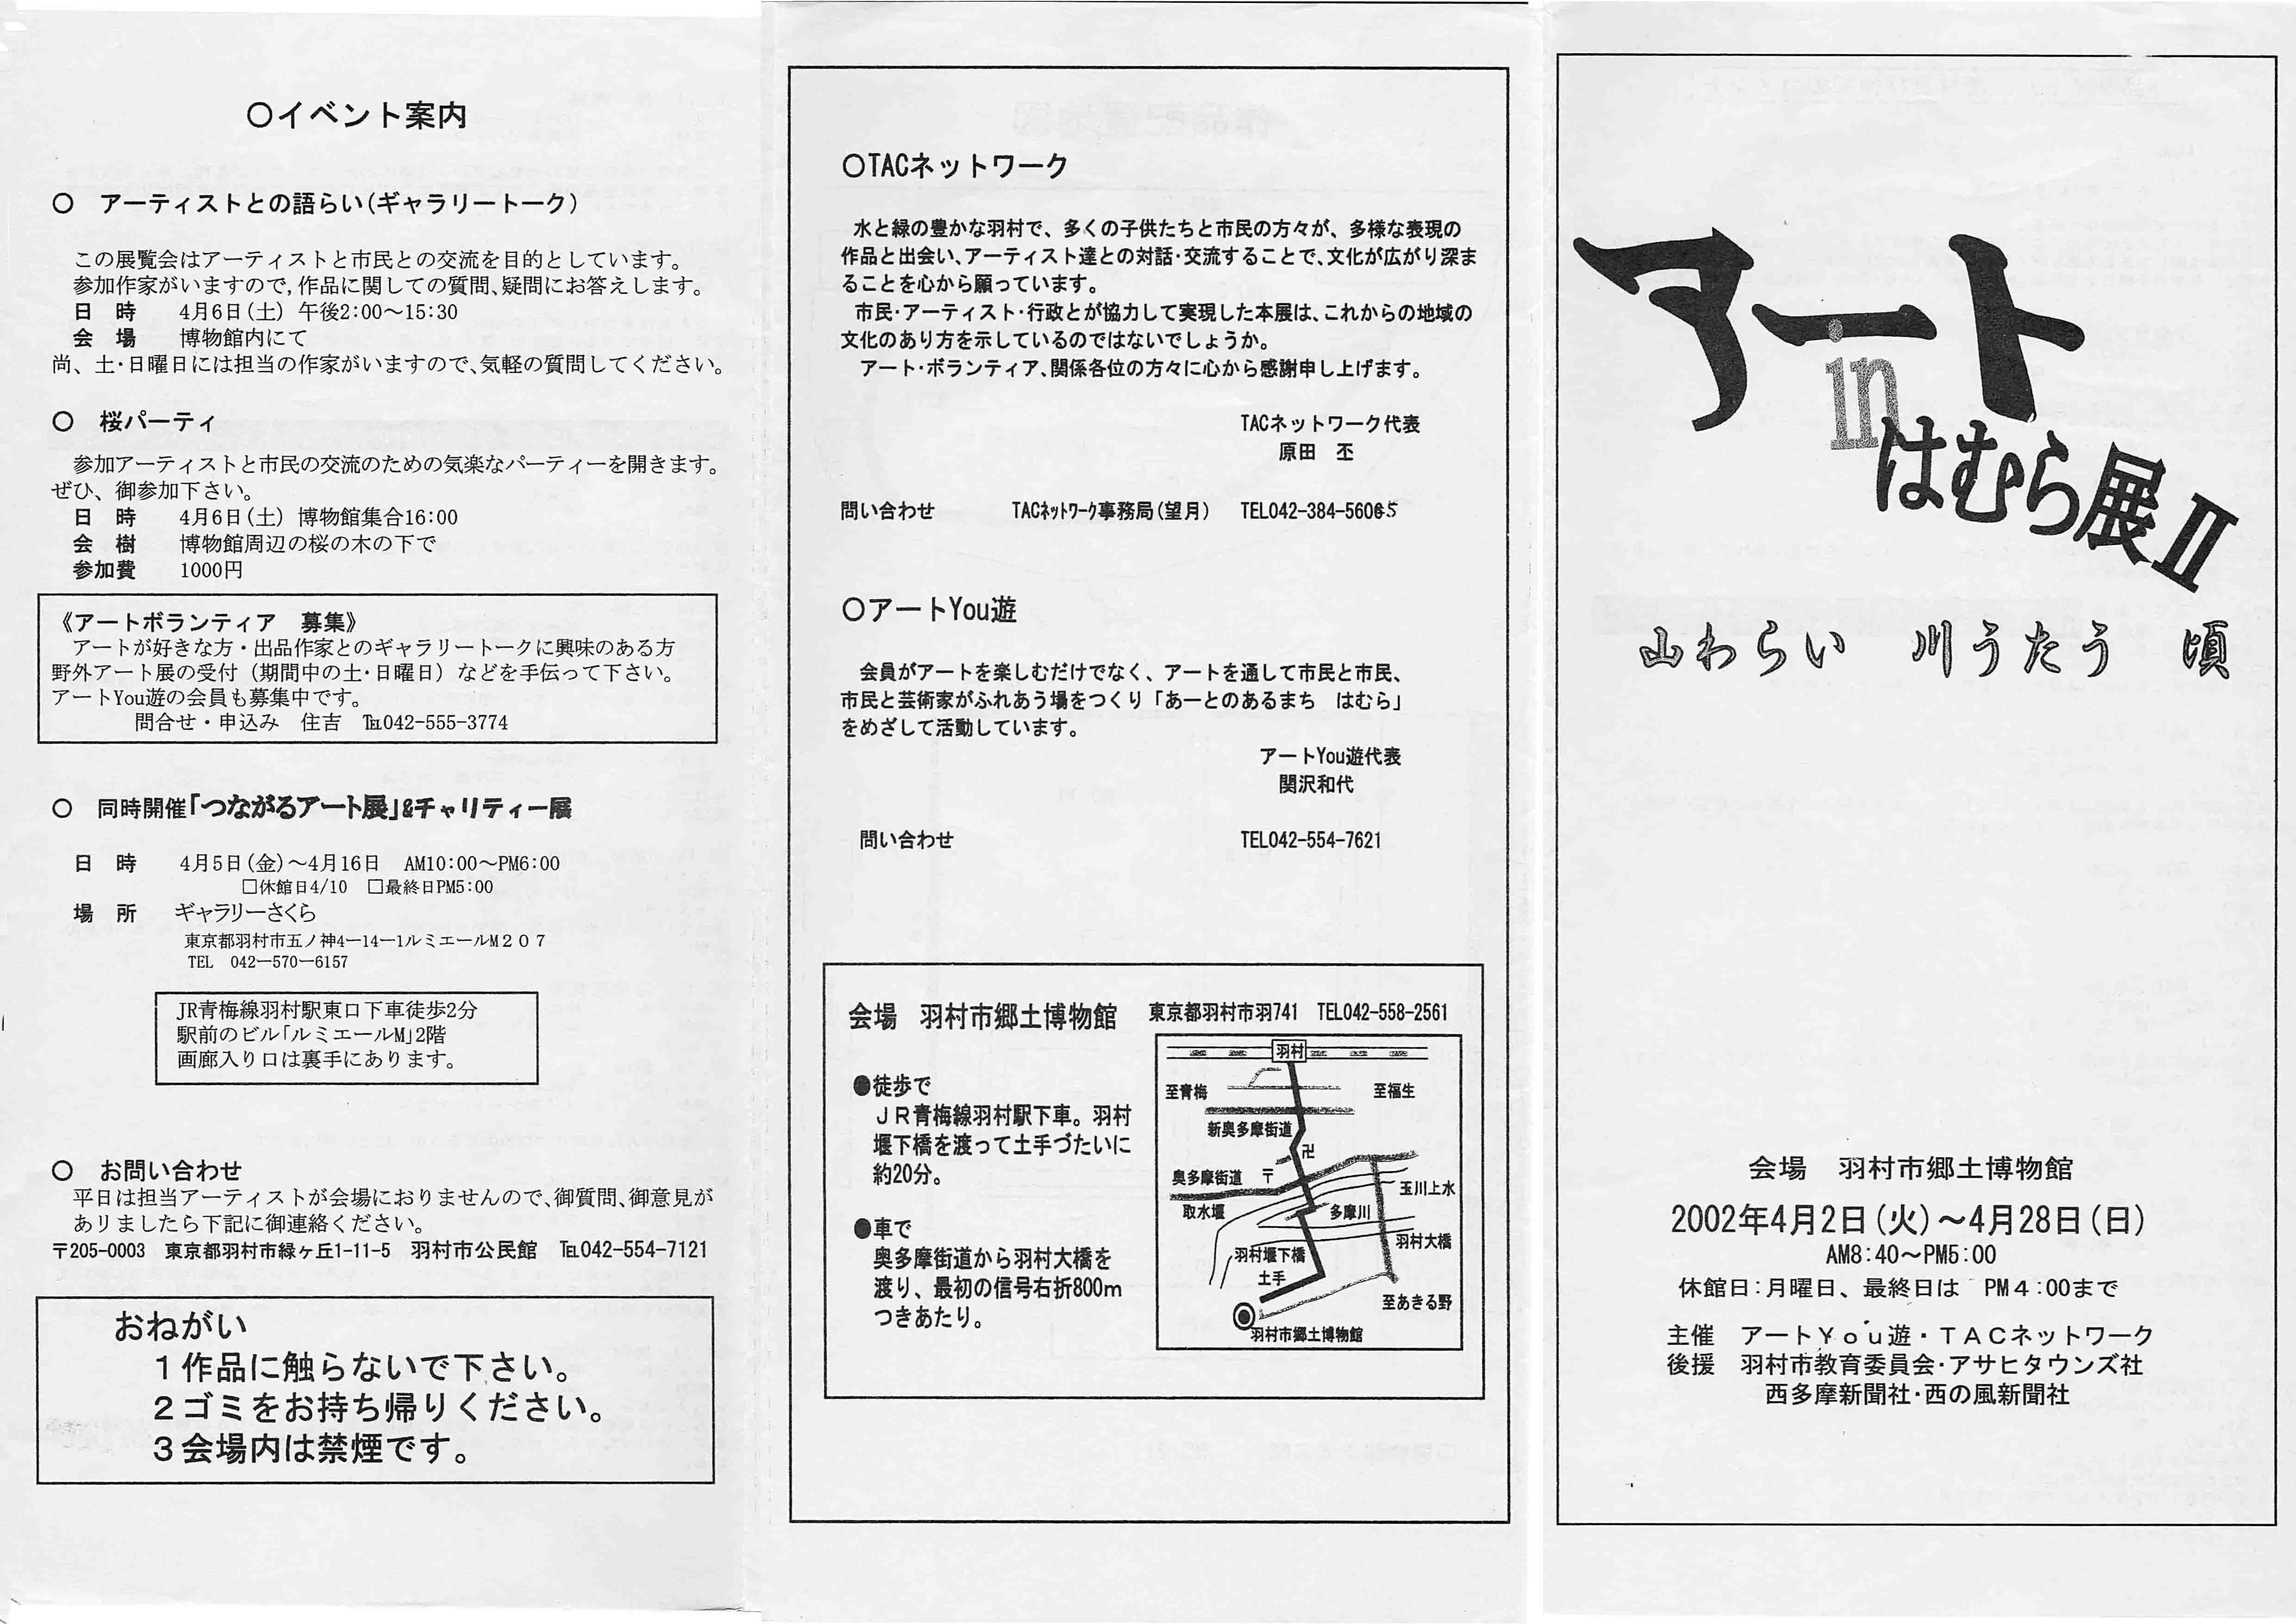 〇イベント案内
〇 アーティストとの語らい(ギャラリートーク)
この展覧会はアーティストと市民との交流を目的としています。
参加作家がいますので,作品に関しての質問、疑問にお答えします。
日 時 4月6日(土) 午後2:00～15:30
会 場 博物館内にて
尚、土・日曜日には担当の作家がいますので、気軽の質問してください。
〇 桜パーティ
参加アーティストと市民の交流のための気楽なパーティーを開きます。
ぜひ、御参加下さい。
日 時 4月6日(土) 博物館集合16:00
会 樹 博物館周辺の桜の木の下で
参加費 1000円
《アートボランティア 募集》
アートが好きな方・出品作家とのギャラリートークに興味のある方
野外アート展の受付（期間中の土・日曜日）などを手伝って下さい。
アートYou遊の会員も募集中です。
問合せ・申込み 住吉 ℡042-555-3774
〇 同時開催「つながるアート展」&チャリティー展
日 時 4月5日(金)～4月16日 AM10:00～PM6:00
□休館日4/10 □最終日PM5:00
場 所 ギャラリーさくら
東京都羽村市五ノ神4ー14ー1ルミエールM２０７
TEL 042ー570ー6157
JR青梅線羽村駅東口下車徒歩2分
駅前のビル「ルミエールM」2階
画廊入り口は裏手にあります。
〇 お問い合わせ
平日は担当アーティストが会場におりませんので、御質問、御意見が
ありましたら下記に御連絡ください。
〒205-0003 東京都羽村市緑ヶ丘1-11-5 羽村市公民館 ℡042-554-7121
おねがい
１作品に触らないで下さい。
２ゴミをお持ち帰りください。
３会場内は禁煙です。
〇TACネットワーク
水と緑の豊かな羽村で、多くの子供たちと市民の方々が、多様な表現の
作品と出会い、アーティスト達との対話・交流することで、文化が広がり深ま
ることを心から願っています。
市民・アーティスト・行政とが協力して実現した本展は、これからの地域の
文化のあり方を示しているのではないでしょうか。
アート・ボランティア、関係各位の方々に心から感謝申し上げます。
TACネットワーク代表
原田 丕
問い合わせ TACﾈｯﾄﾜｰｸ事務局(望月) TEL042-384-5605
〇アートYou遊
会員がアートを楽しむだけでなく、アートを通して市民と市民、
市民と芸術家がふれあう場をつくり「あーとのあるまち はむら」
をめざして活動しています。
アートYou遊代表
関沢和代
問い合わせ TEL042-554-7621
会場 羽村市郷土博物館 東京都羽村市羽741 TEL042-558-2561
●徒歩で
ＪＲ青梅線羽村駅下車。羽村
堰下橋を渡って土手づたいに
約20分。
●車で
奥多摩街道から羽村大橋を
渡り、最初の信号右折800m
つきあたり。
羽村
至青梅
至福生
新奥多摩街道
卍
奥多摩街道 〒
玉川上水
取水堰
多摩川
羽村大橋
羽村堰下橋
土手
至あきる野
羽村市郷土博物館
アート
in
はむら展Ⅱ
山わらい 川うたう 頃
会場 羽村市郷土博物館
2002年4月2日(火)～4月28日(日)
AM8:40～PM5:00
休館日:月曜日、最終日は PM４:00まで
主催 アートＹｏｕ遊・ＴＡＣネットワーク
後援 羽村市教育委員会・アサヒタウンズ社
西多摩新聞社・西の風新聞社